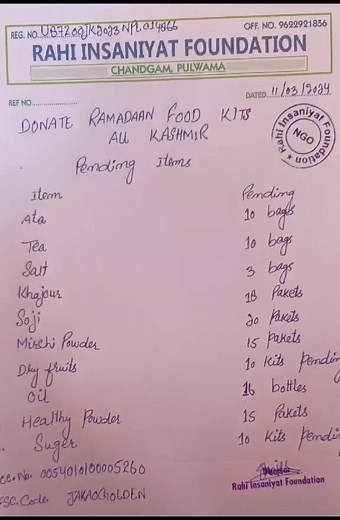 REG. NO. U87200JK2023NPL014866 OFF. NO. 9622921856
RAHI INSANIYAT FOUNDATION
CHANDGAM, PULWAMA
REF NO. DATED. 11/03/2024
DONATE RAMADAAN FOOD KITS
ALL KASHMIR
Rahi Insaniyat Foundation
NGO
Pending Items
Item Pending
Ata 10 bags
Tea 10 bags
Salt 3 bags
Khajour 18 Pakets
Soji 20 Pakets
Mirchi Powder 15 pakets
Dry fruits 10 Kits Pending
Oil 16 bottles
Healthy Powder 15 Pakets
Suger 10 Kits Pending
cc. No. 0054010100005260
FSC. Code JAKA0GOLDEN
Rahi Insaniyat Foundation